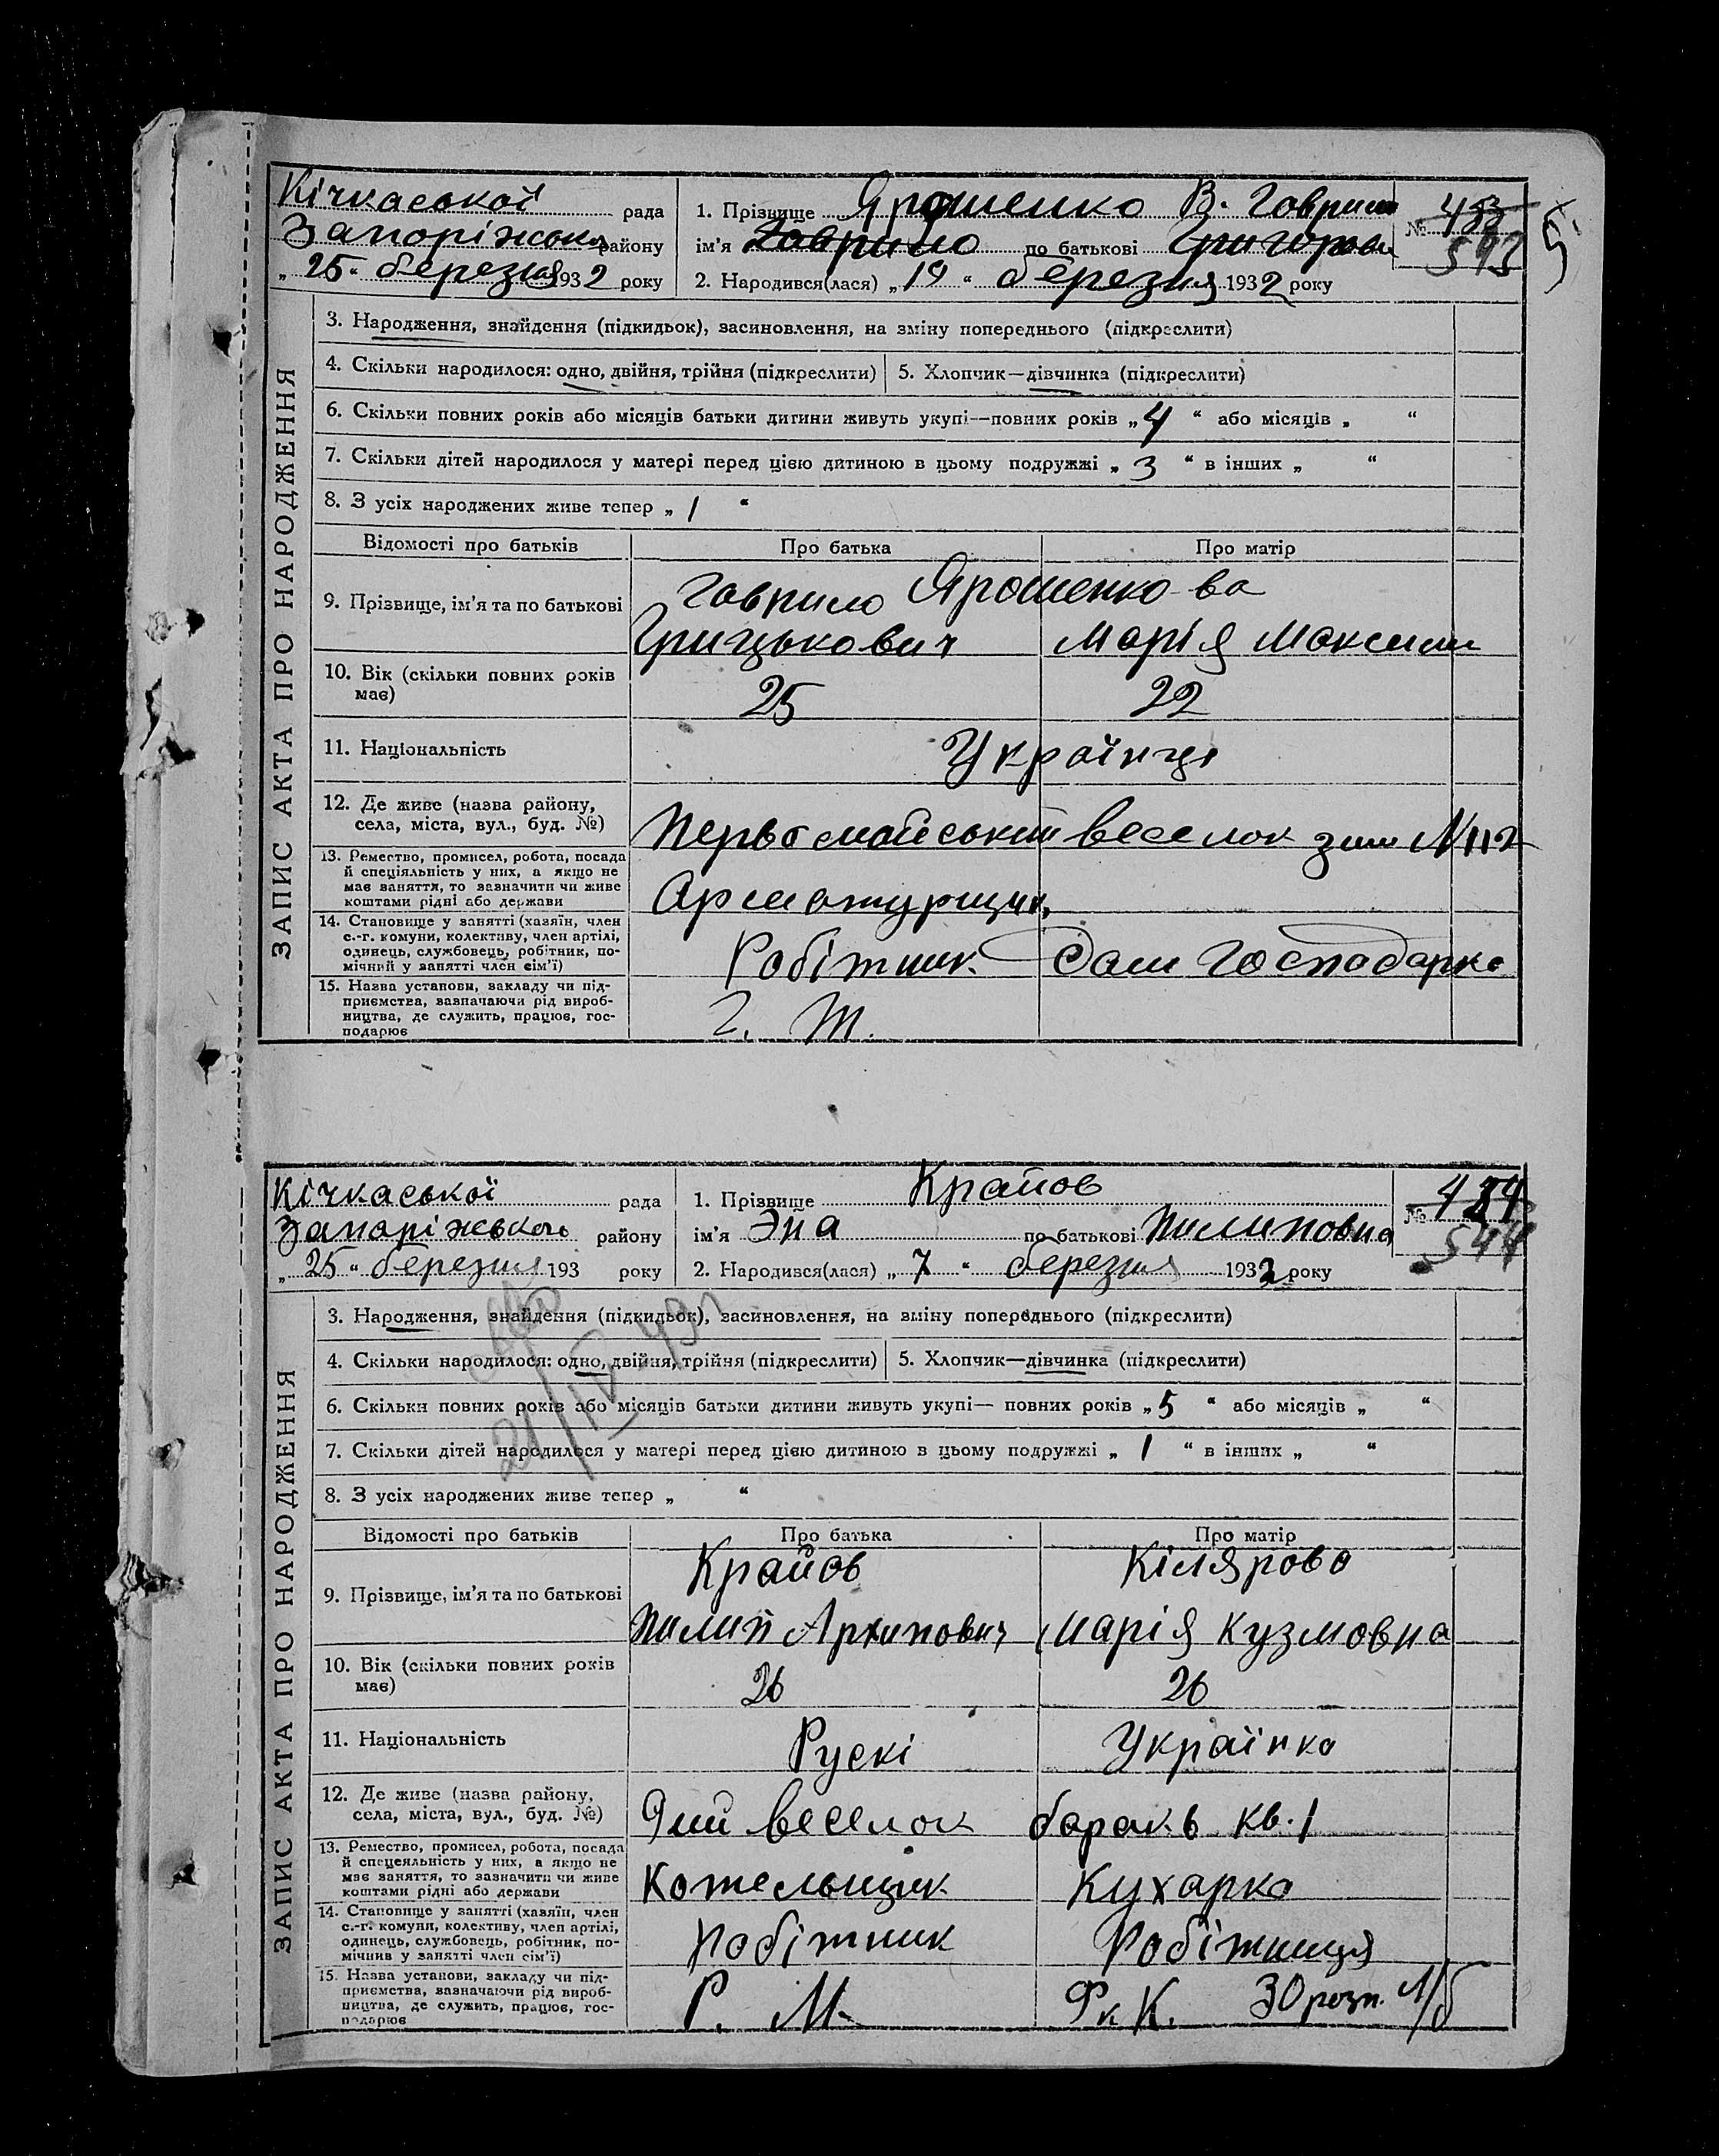 Кічкаської рада
Запоріжськ району
„ 25 “ березня 1932 року
1. Прізвище Ярошенко В. Гаврил
ім’я по батькові
2. Народився(лася) „ 19 “ березня 1932 року
№ 433
543
ЗАПИС АКТА ПРО НАРОДЖЕННЯ
3. Народження, знайдення (підкидьок), засиновлення, на зміну попереднього (підкреслити)
4. Скільки народилося: одно, двійня, трійня (підкреслити) 5. Хлопчик—дівчинка (підкреслити)
6. Скільки повних років або місяців батьки дитини живуть укупі—повних років „ 4 “ або місяців „ “
7. Скільки дітей народилося у матері перед цією дитиною в цьому подружжі „ 3 “ в інших „ “
8. З усіх народжених живе тепер „ 1 “
Відомості про батьків Про батька Про матір
9. Прізвище, ім’я та по батькові
Гаврило Ярошенко-ва
Грицькович Марія Максим
10. Вік (скільки повних років має)
25 22
11. Національність
Українці
12. Де живе (назва району, села, міста, вул., буд. №)
Первомайський веселок зем №112
13. Ремество, промисел, робота, посада й спеціяльність у них, а якщо не має заняття, то зазначити чи живе коштами рідні або держави
Арматурщик
14. Становище у занятті (хазяїн, член с.-г. комуни, колективу, член артілі, одинець, службовець, робітник, помічний у занятті член сім’ї)
Робітник Дом Господарка
15. Назва установи, закладу чи підприємства, зазначаючи рід виробництва, де служить, працює, господарює
Г. Т.
Кічкаської рада
Запоріжської району
„ 25 “ березня 193 року
1. Прізвище Крайов
ім’я Эна по батькові Пилиповна
2. Народився(лася) „ 7 “ березня 1932 року
№ 434
544
21/IV
ЗАПИС АКТА ПРО НАРОДЖЕННЯ
3. Народження, знайдення (підкидьок), засиновлення, на зміну попереднього (підкреслити)
4. Скільки народилося: одно, двійня, трійня (підкреслити) 5. Хлопчик—дівчинка (підкреслити)
6. Скільки повних років або місяців батьки дитини живуть укупі— повних років „ 5 “ або місяців „ “
7. Скільки дітей народилося у матері перед цією дитиною в цьому подружжі „ 1 “ в інших „ “
8. З усіх народжених живе тепер „ “
Відомості про батьків Про батька Про матір
9. Прізвище, ім’я та по батькові
Крайов Кілярова
Пилип Архипович Марія Кузмовна
10. Вік (скільки повних років має)
26 26
11. Національність
Рускі Українка
12. Де живе (назва району, села, міста, вул., буд. №)
9ий веселок барак 6 кв. 1
13. Ремество, промисел, робота, посада й спецеяльність у них, а якщо не має заняття, то зазначити чи живе коштами рідні або держави
Котельщик Кухарка
14. Становище у занятті (хазяїн, член с.-г. комуни, колективу, член артілі, одинець, службовець, робітник, помічнив у занятті член сім’ї)
Робітник Робітниця
15. Назва установи, закладу чи підприємства, зазначаючи рід виробництва, де служить, працює, господарює
Р. М. ФкК. 30 розп.